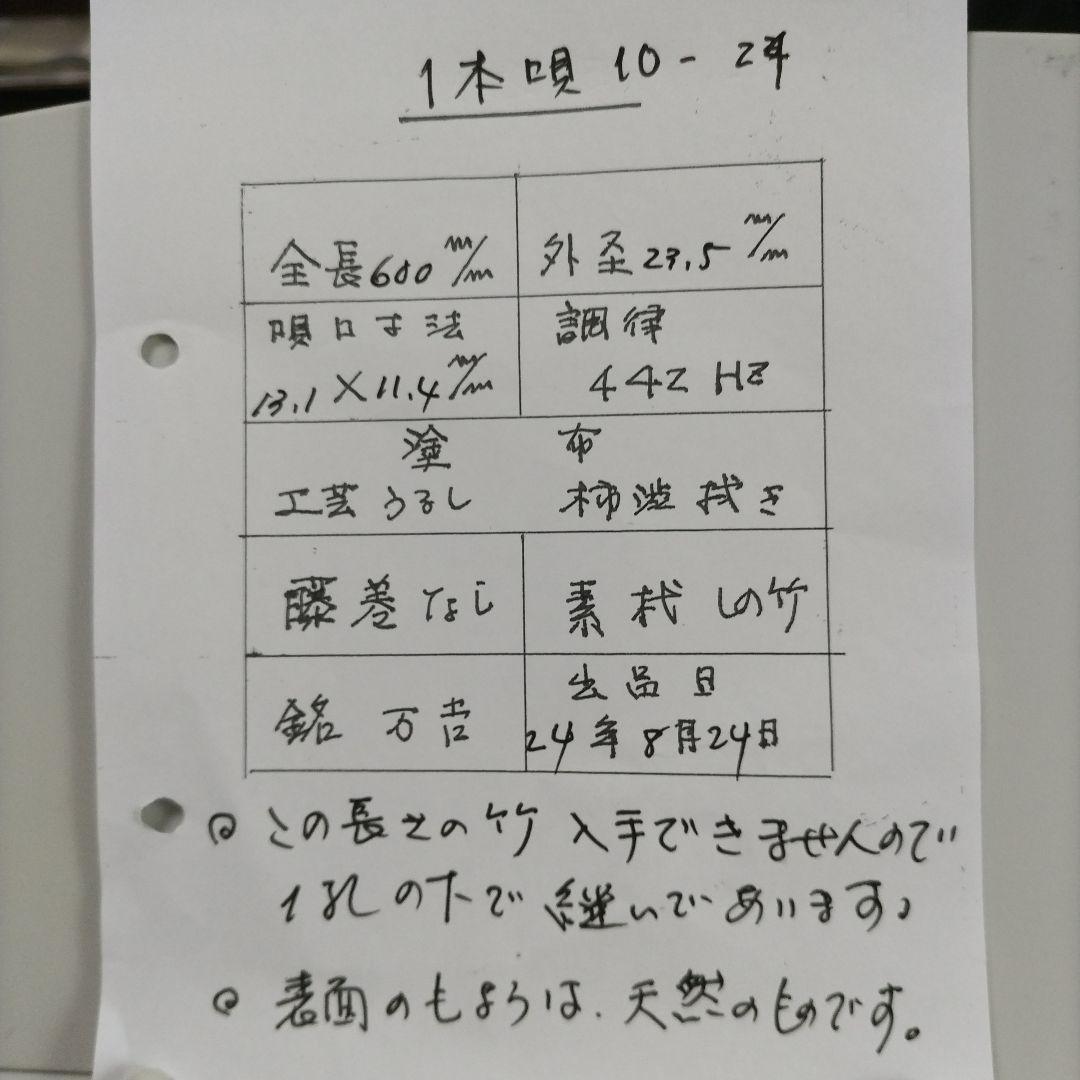 1本唄 10-24
全長600 m/m
外径23.5 m/m
唄口寸法
13.1×11.4 m/m
調律
442 HZ
塗 布
工芸うるし 柿渋拭き
藤巻なし
素材 しの竹
銘 万吉
出品日
24年8月24日
◎ この長さの竹 入手できませんので
1孔の下で 継いであります。
◎ 表面のもようは、天然のものです。